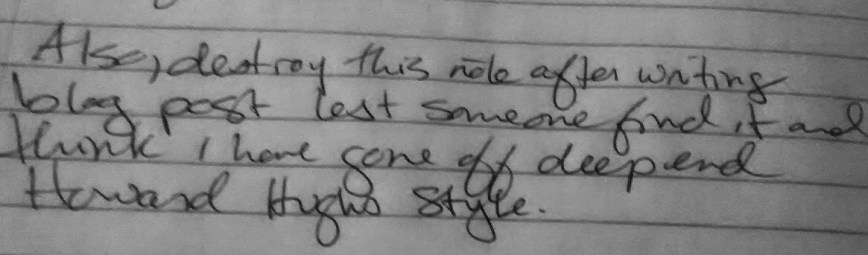 Also, destroy this note after writing
blog post lest someone find it and
think I have gone off deep end
Howard Hughs style.